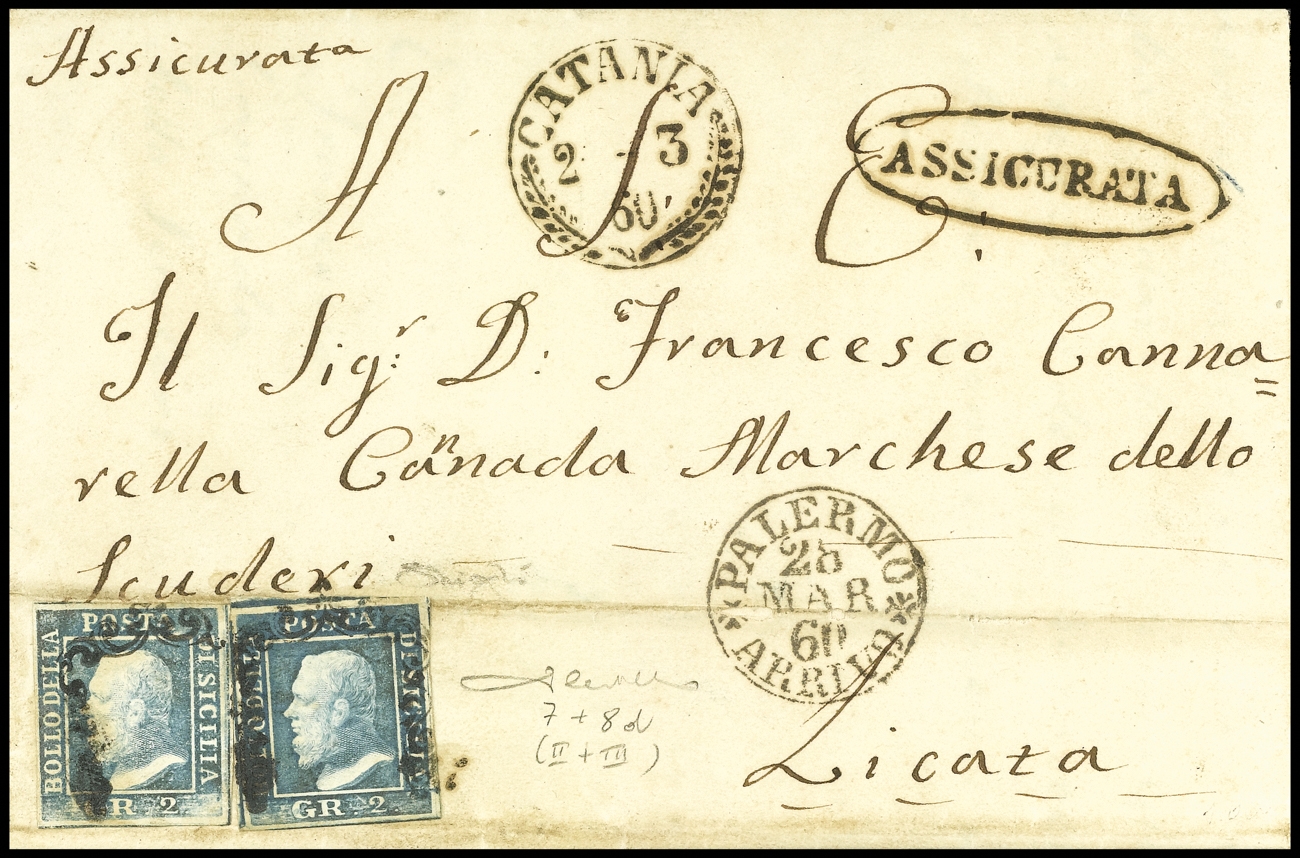 Assicurata
CATANIA
2 3
60
ASSICURATA
A S E.
Il Sigr. D. Francesco Canna=
rella Cañnada Marchese dello
Scuderi
PALERMO
28
MAR
60
ARRIVO
BOLLO DELLA POSTA DI SICILIA
GR. 2.
BOLLO DELLA POSTA DI SICILIA
GR. 2.
7 + 8d
(II + III)
Licata